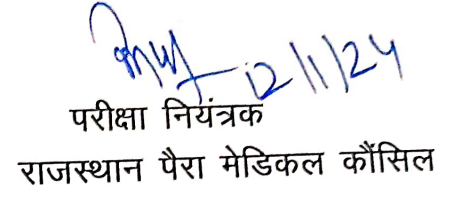 12/1/24
परीक्षा नियंत्रक
राजस्थान पैरा मेडिकल कौंसिल